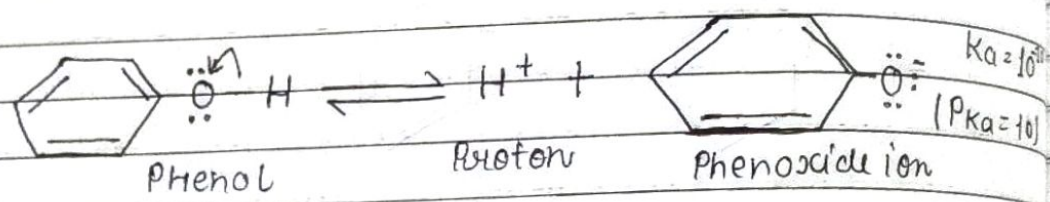 Ö – H ⇌ H⁺ + – Ö:⁻ Ka = 10⁻¹⁰
(PKa = 10)
Phenol Proton Phenoxide ion